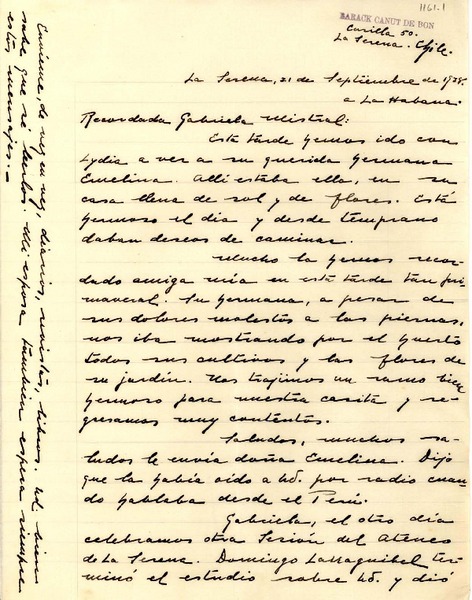 1161.1
BARACK CANUT DE BON
Casilla 50.
La Serena. Chile.
La Serena, 21 de Septiembre de 1938.
a La Habana.
Recordada Gabriela Mistral:
Esta tarde hemos ido con
Lydia a ver a su querida hermana
Emelina. Allí estaba ella, en su
casa llena de sol y de flores. Está
hermoso el día y desde temprano
daban deseos de caminar.
Mucho la hemos recor-
dado amiga mía en esta tarde tan pri-
maveral. Su hermana, a pesar de
sus dolores molestos a las piernas,
nos iba mostrando por el huerto
todos sus cultivos y las flores de
su jardín. Nos trajimos un ramo bien
hermoso para nuestra casita y re-
gresamos muy contentos.
Saludos, muchos sa-
ludos le envía doña Emelina. Dijo
que la había oído a Ud. por radio cuan-
do hablaba desde el Perú.
Gabriela, el otro día
celebramos otra Sesión del Ateneo
de La Serena. Domingo Larraguibel ter-
minó el estudio sobre Ud. y dió
Envíeme, de vez en vez, diarios, revistas, libros. Ud. bien
sabe que sé leerlos. Mi esposa también espera siempre
estos mensajes.-